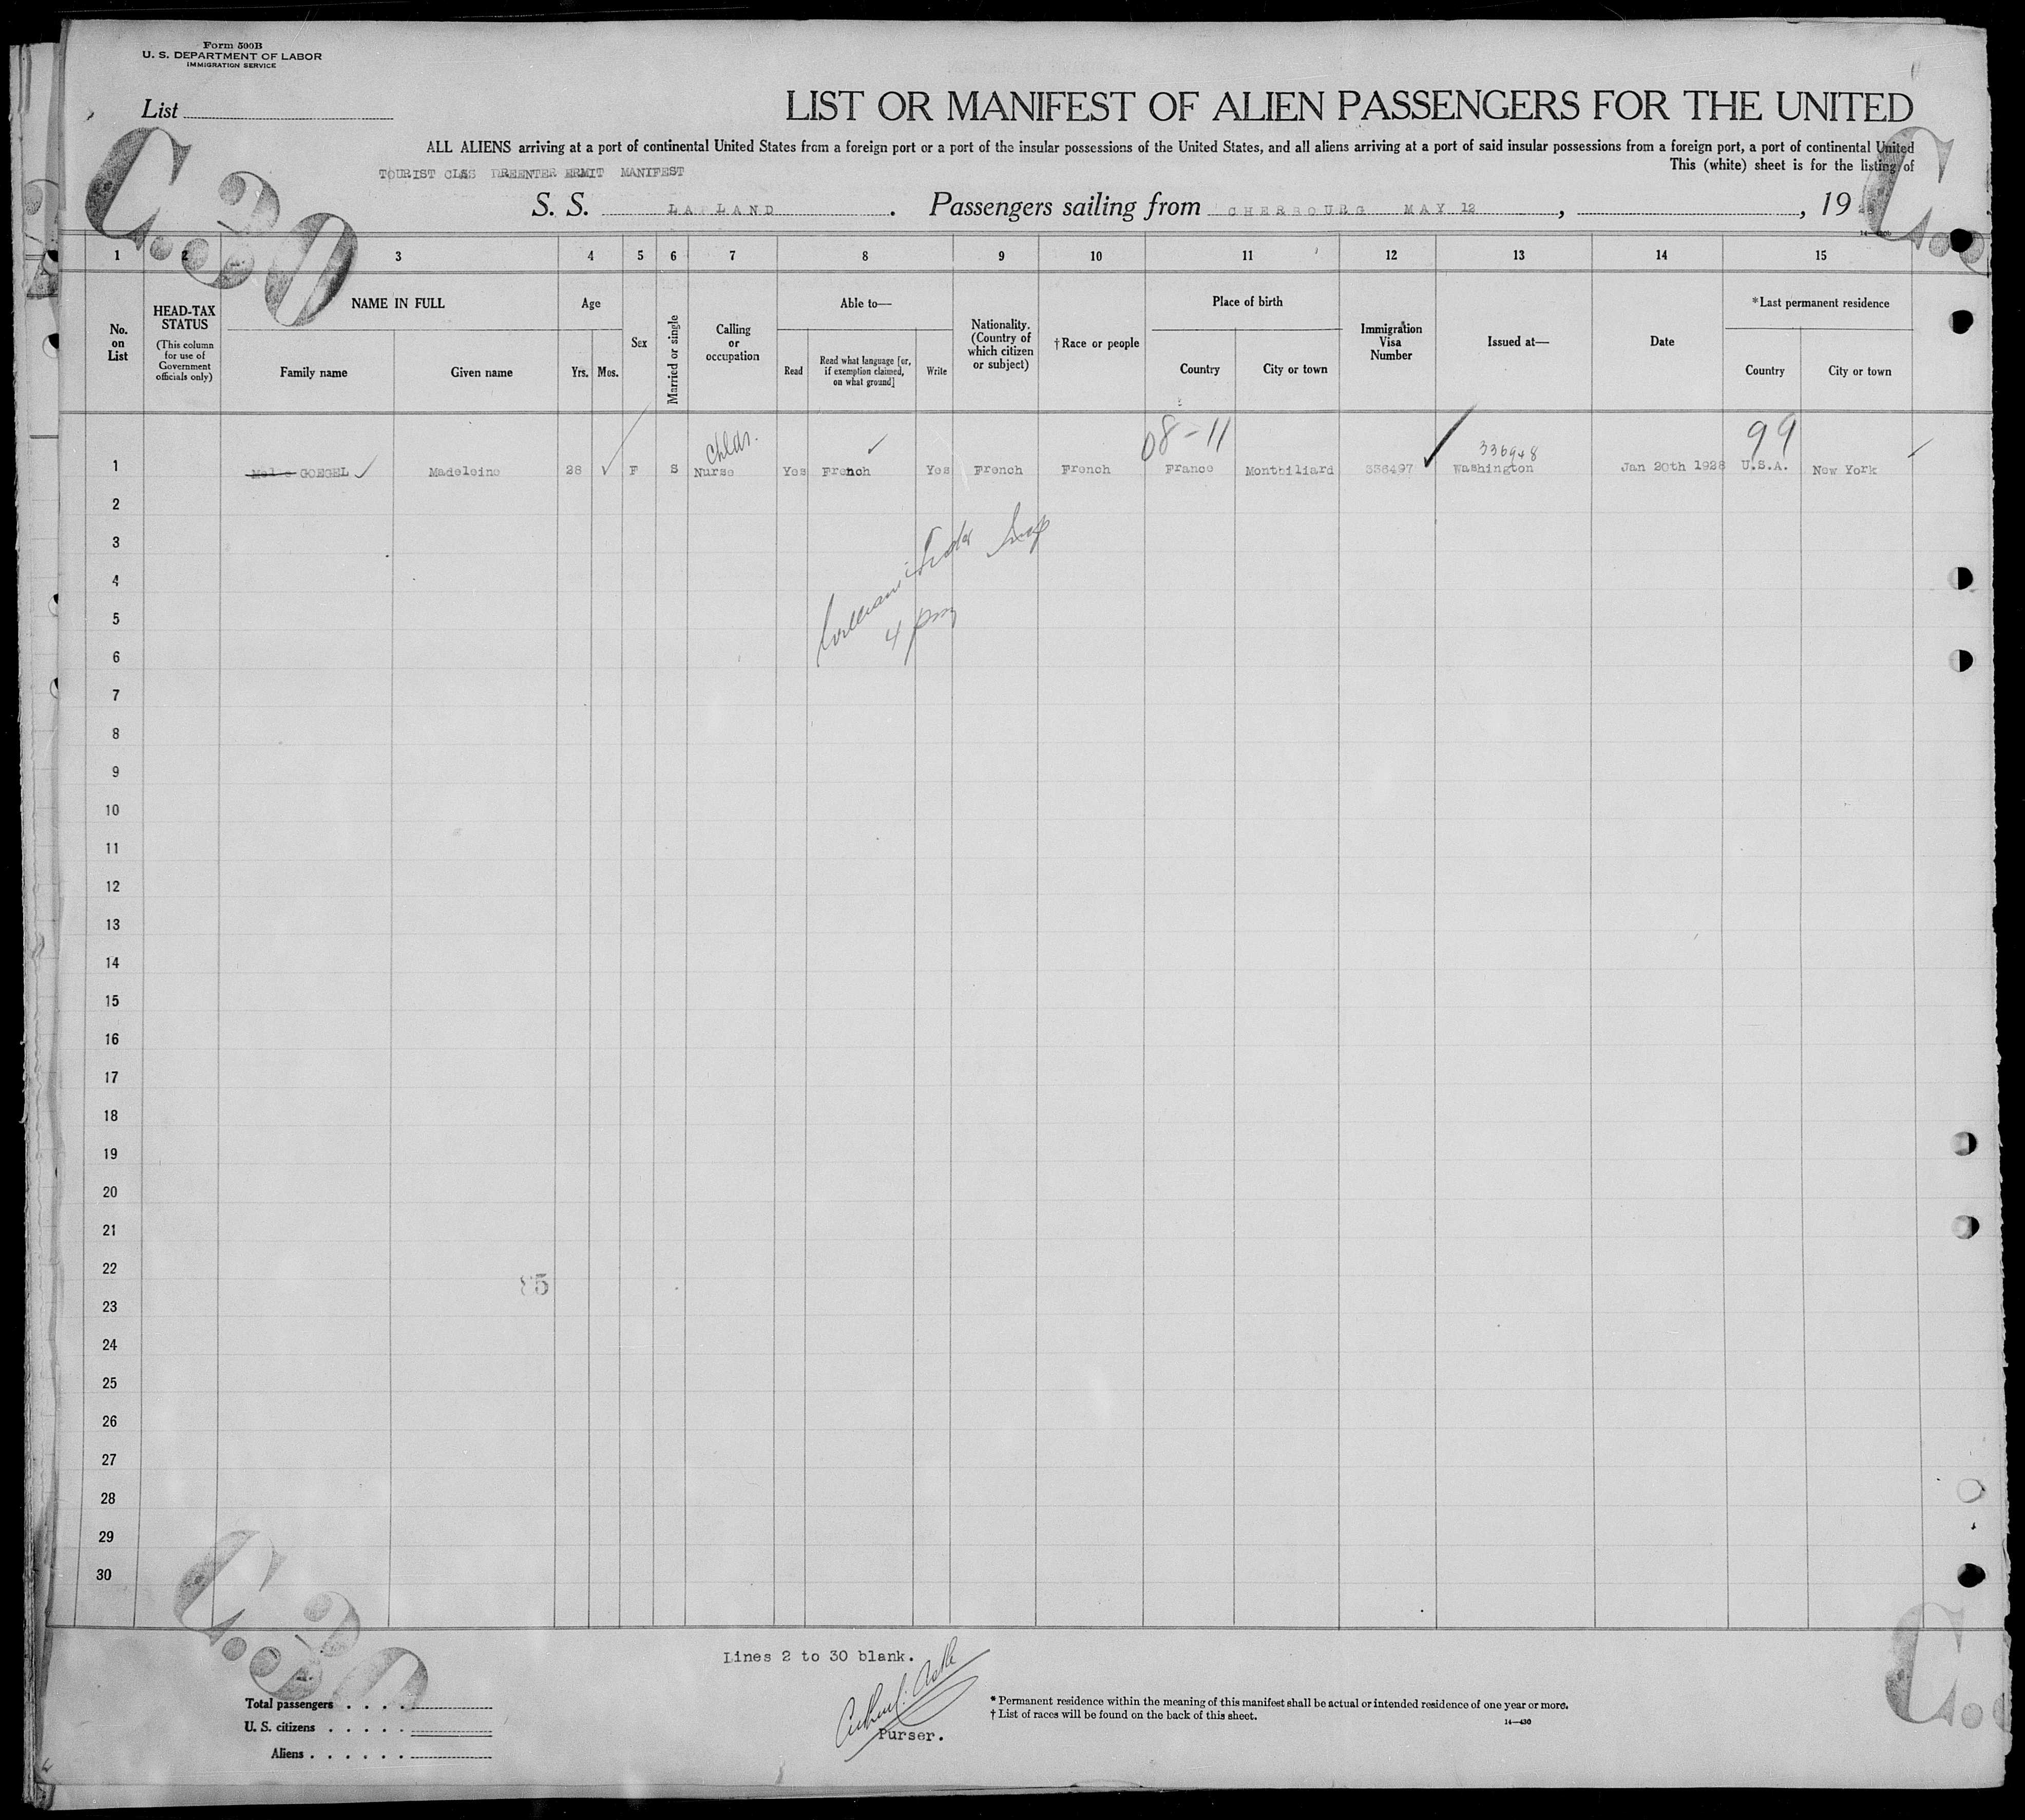 Form 500B
U. S. DEPARTMENT OF LABOR
IMMIGRATION SERVICE
List
LIST OR MANIFEST OF ALIEN PASSENGERS FOR THE UNITED
ALL ALIENS arriving at a port of continental United States from a foreign port or a port of the insular possessions of the United States, and all aliens arriving at a port of said insular possessions from a foreign port, a port of continental United
This (white) sheet is for the listing of
TOURIST CLSS REENTER ERMIT MANIFEST
S. S. LAPLAND. Passengers sailing from CHERBOURG MAY 12, , 19
C.30
C.
1 2 3 4 5 6 7 8 9 10 11 12 13 14 15
No. on List
HEAD-TAX STATUS
(This column for use of Government officials only)
NAME IN FULL
Family name
Given name
Age
Yrs. Mos.
Sex
Married or single
Calling or occupation
Able to—
Read
Read what language [or, if exemption claimed, on what ground]
Write
Nationality. (Country of which citizen or subject)
†Race or people
Place of birth
Country
City or town
Immigration Visa Number
Issued at—
Date
*Last permanent residence
Country
City or town
Chldr. 08-11 336948 99
1 GOEGEL Madeleine 28 F S Nurse Yes French Yes French French France Montbiliard 336497 Washington Jan 20th 1928 U.S.A. New York
2
3
4
5
4 pm
6
7
8
9
10
11
12
13
14
15
16
17
18
19
20
21
22
85
23
24
25
26
27
28
29
30
C.30
C.
Lines 2 to 30 blank.
Purser.
Total passengers . . . .
U. S. citizens . . . . .
Aliens . . . . . .
* Permanent residence within the meaning of this manifest shall be actual or intended residence of one year or more.
† List of races will be found on the back of this sheet.
14—430